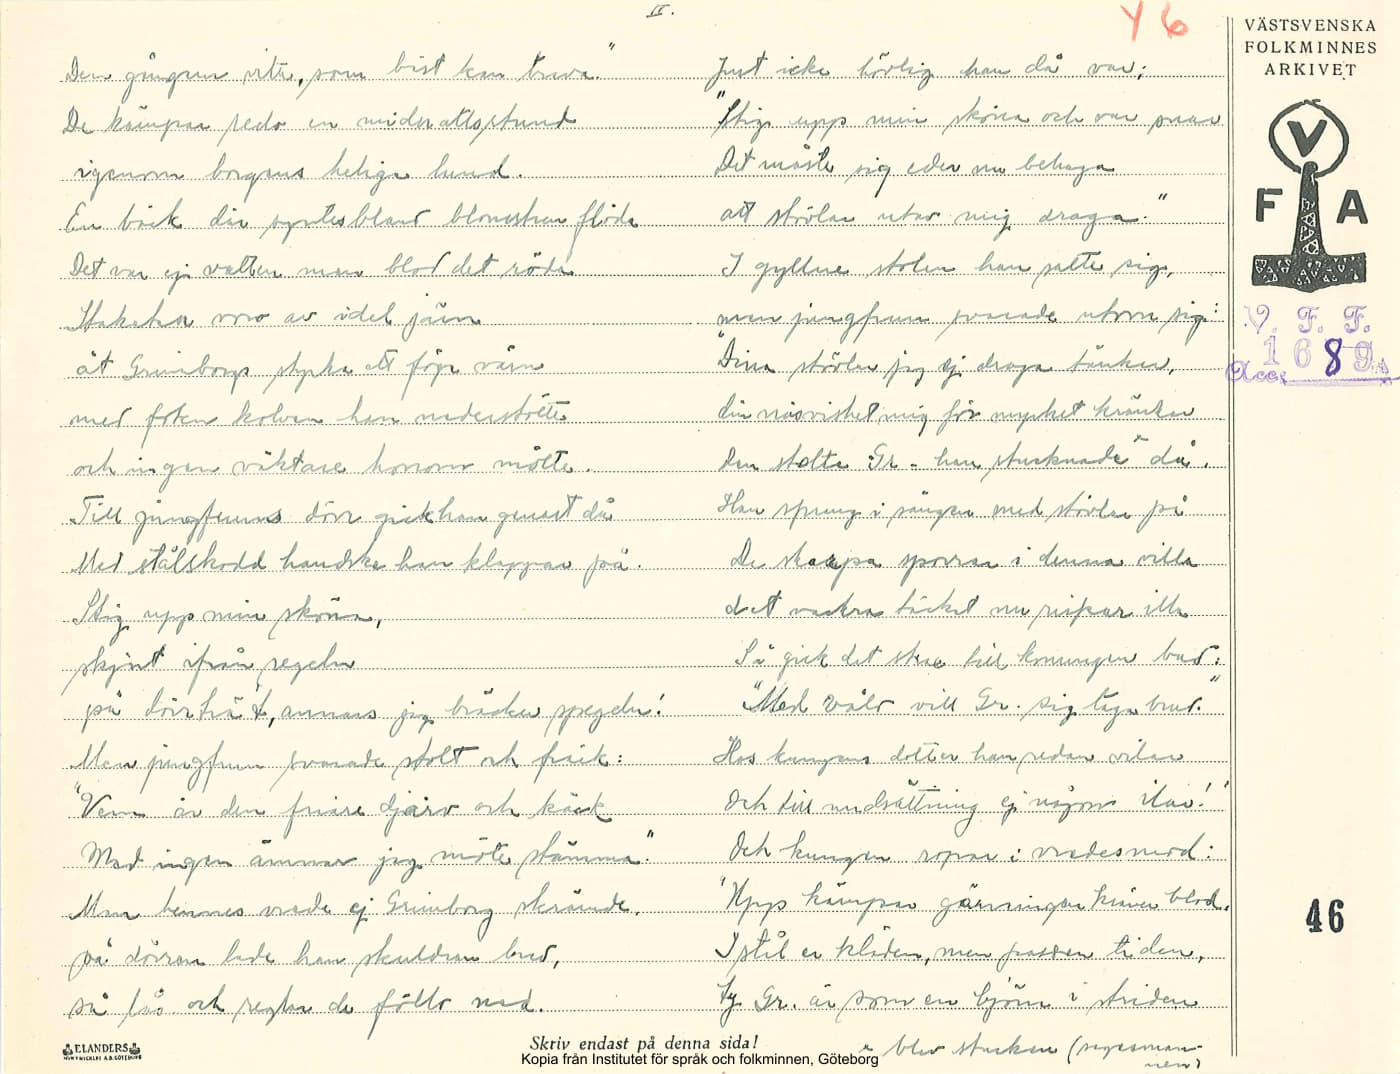 II.
Y 6
Den gången vitre, som bäst kan truva."
De kämpar redo en midnattsstund
igenom borgens heliga lund.
En bäck där syntes bland blomstren flöda
Det var ej vatten men blod det röda
Staketen voro av idel järn
åt Grimborgs styrka ett föga värn
med foten kolven han nederstötte
och ingen väktare honom mötte.
Till jungfruns dörr gick han genast då
Med stålskodd handske han klappar på.
Stig upp min sköna,
skjut ifrån regeln
på dörrträt, annars jag bräcker spegeln!
Men jungfrun svarade stolt och fräck:
"Vem är den friare djärv och käck
Med ingen ämnar jag möte stämma."
Men hennes vrede ej Grimborg skrämde.
på dörren lade han skuldran bred,
så lås och reglar de föllo ned.
Just icke hövlig han då var;
"Stig upp min sköna och var snar
Det måste sig eder nu behaga
att stövlar utav mig draga."
I gyllne stolen han satte sig,
men jungfrun svarade utom sig:
"Dina stövlar jag ej draga tänker,
din näsvishet mig för mycket kränker
Den stolte Gr - han stucknade x då.
Han sprang i sängen med stövlar på
De skarpa sporrar i denna villa
det vackra täcket nu rispar illa
Så gick det strax till konungen bud:
"Med våld vill Gr. sig taga brud."
Hos kungens dotter han redan vilar
Och till undsättning ej någon ilar!"
Och kungen ropar i vredesmod:
"Upp kämpar gärningen kräver blod.
I stål er kläden, men passen tiden,
ty Gr. är som en björn i striden
x blev stucken (sagesman-
nen)
VÄSTSVENSKA
FOLKMINNES
ARKIVET
V
F A
V. F. F.
Acc. 1689
46
ELANDERS
Skriv endast på denna sida!
Kopia från Institutet för språk och folkminnen, Göteborg